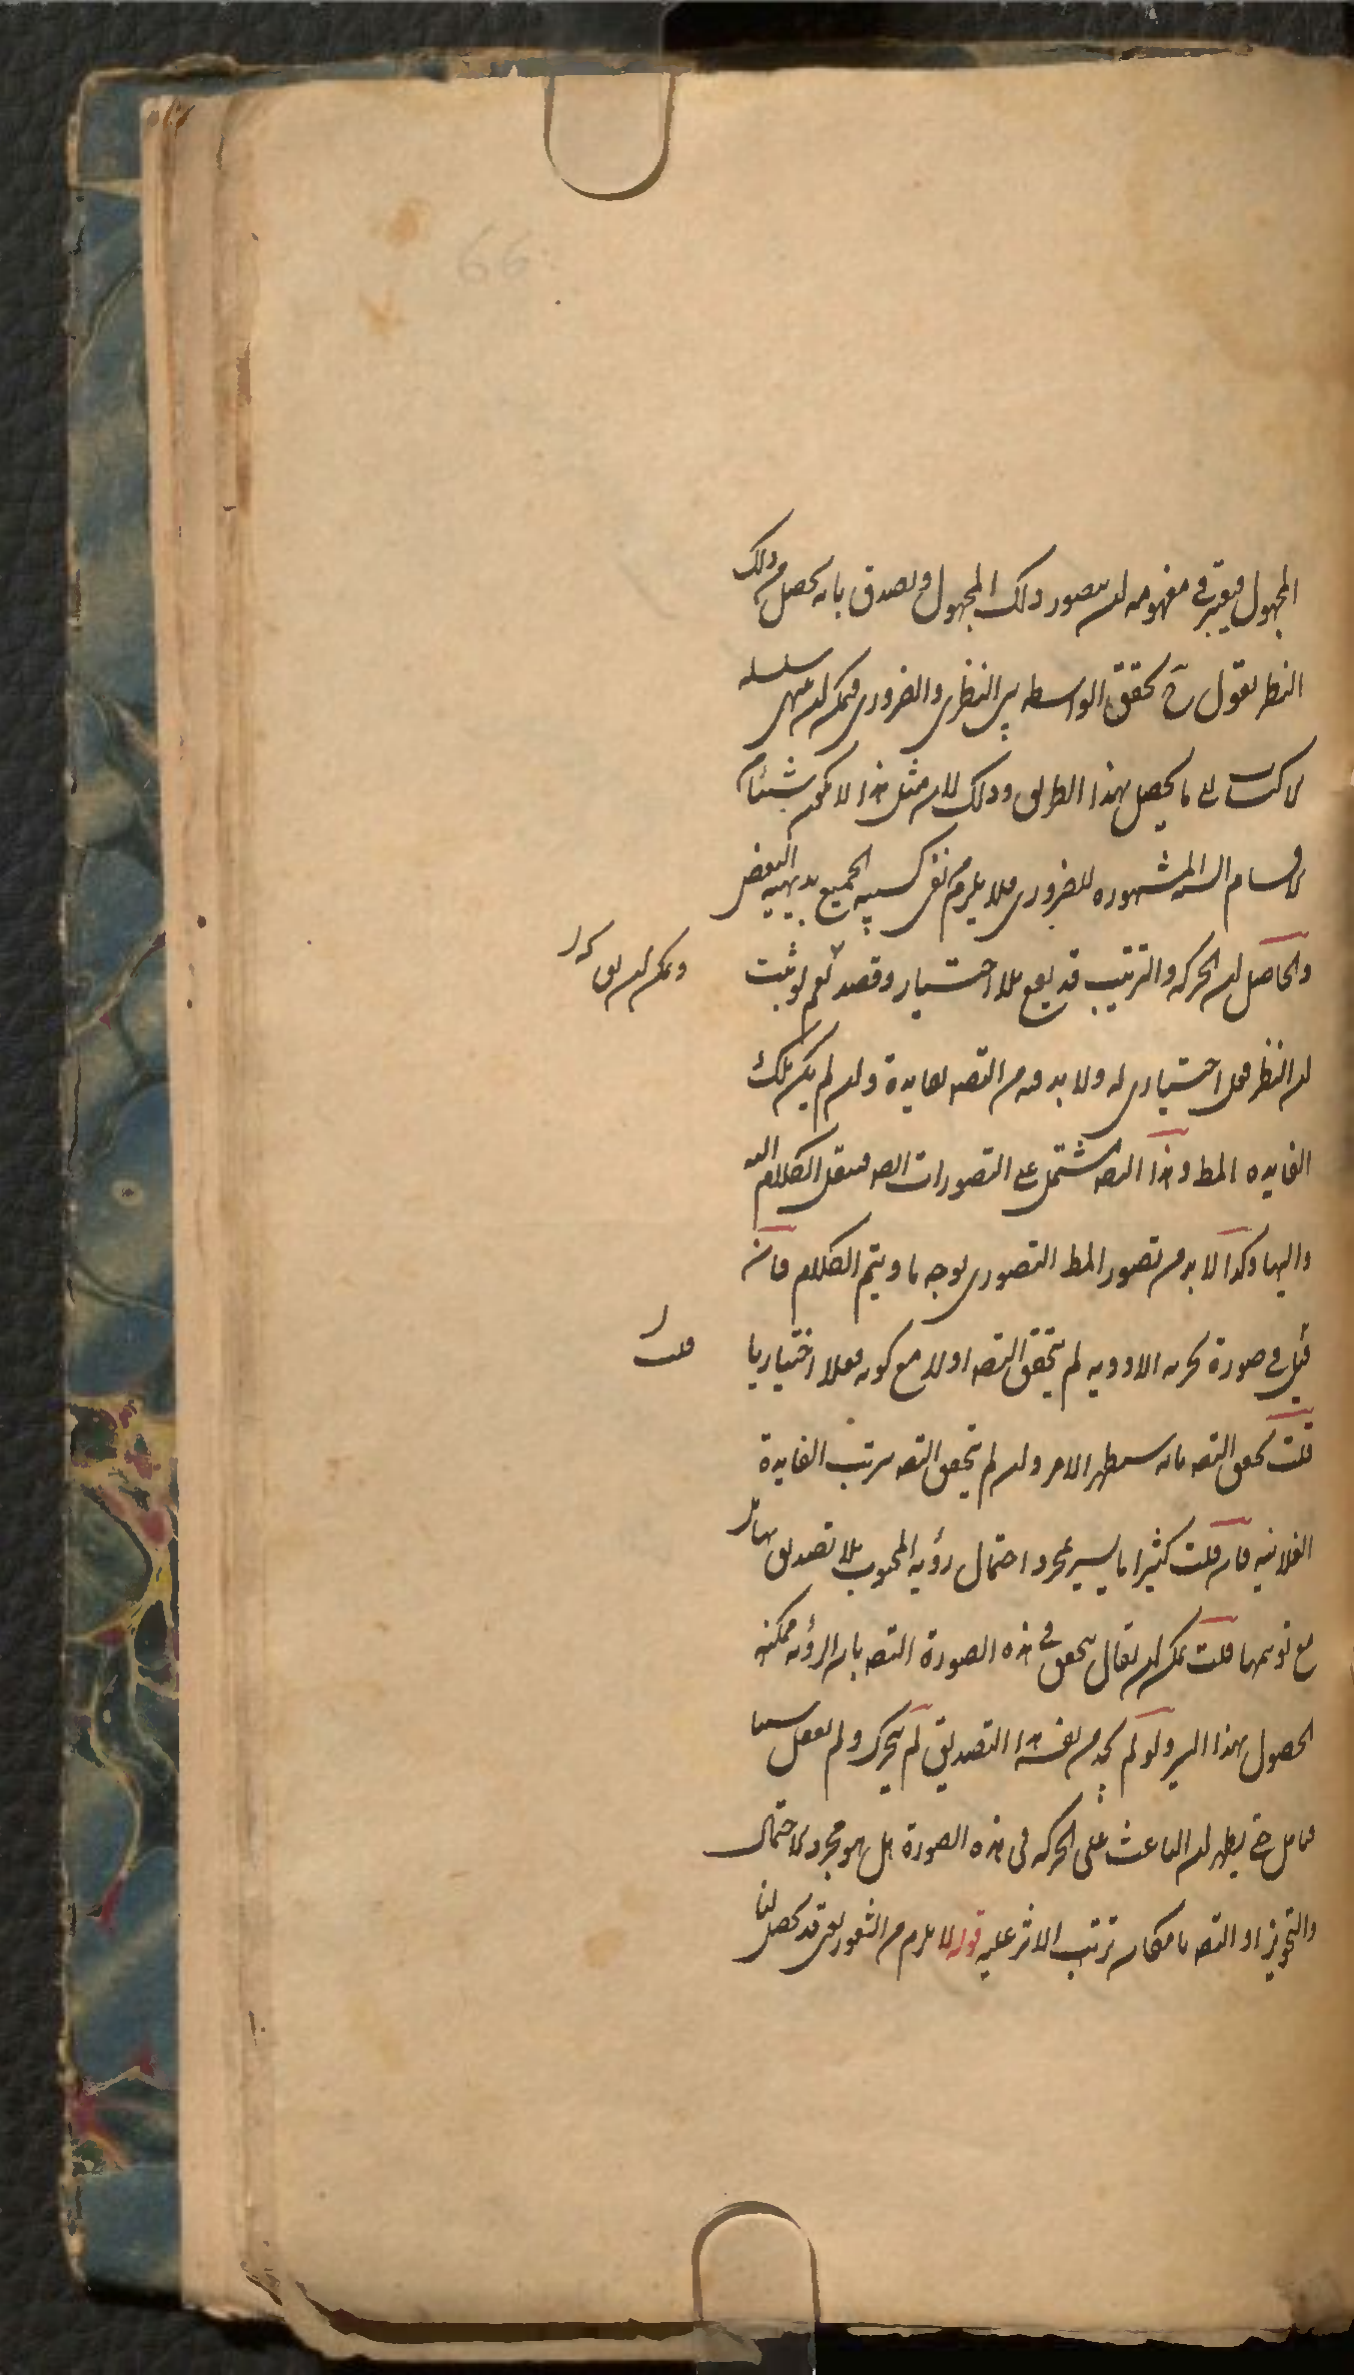 66
المجهول فيعتبر في مفهومه ان يتصور ذلك المجهول ويصدق بانه يحصل من ذلك
النظر نقول ح تحقق الواسطه بين النظرى والضرورى فيمكن ان ينتهى سلسله
الاكتساب الى ما يحصل بهذا الطريق وذلك لان مثل هذا لا يكون شيئا من
الاقسام السته المشهوره للضرورى فلا يلزم من نفى كسبيه الجميع بديهيه البعض
والحاصل ان الحركه والترتيب قد يقع بلا اختيار وقصد نعم لو ثبت
ويمكن ان يق
ان النظر فعل اختيارى له ولا بد فيه من التصه بفايدة وان لم يكن تلك
الفايده المط وهذا التصه مشتمل على التصورات الثه فينقل الكلام اليه
واليها وكذا لا بد من تصور المط التصورى بوجه ما ويتم الكلام فان
قيل في صورة تجربه الادويه لم يتحقق التصه اولا مع كونه فعلا اختياريا
قلت
قلت تحقق التصه بانه سيظهر الامر وان لم يتحقق التصه بترتب الفايدة
الفلانيه فان قلت كثيرا ما يسير بمجرد احتمال رؤيه المحبوب بلا تصديق بها بل
مع توهمها قلت يمكن ان يقال يتحقق في هذه الصورة التصه بان الرؤيه ممكنه
الحصول بهذا السير ولو لم يجد من نفسه هذا التصديق لم يتحرك ولم يفعل شيئا
فتامل حتى يظهر ان الباعث على الحركه فى هذه الصورة هل هو مجرد الاحتمال
والتجويز او التصه بامكان ترتب الاثر عليه قوله لا يلزم من الشعور يعنى قد يحصل لنا